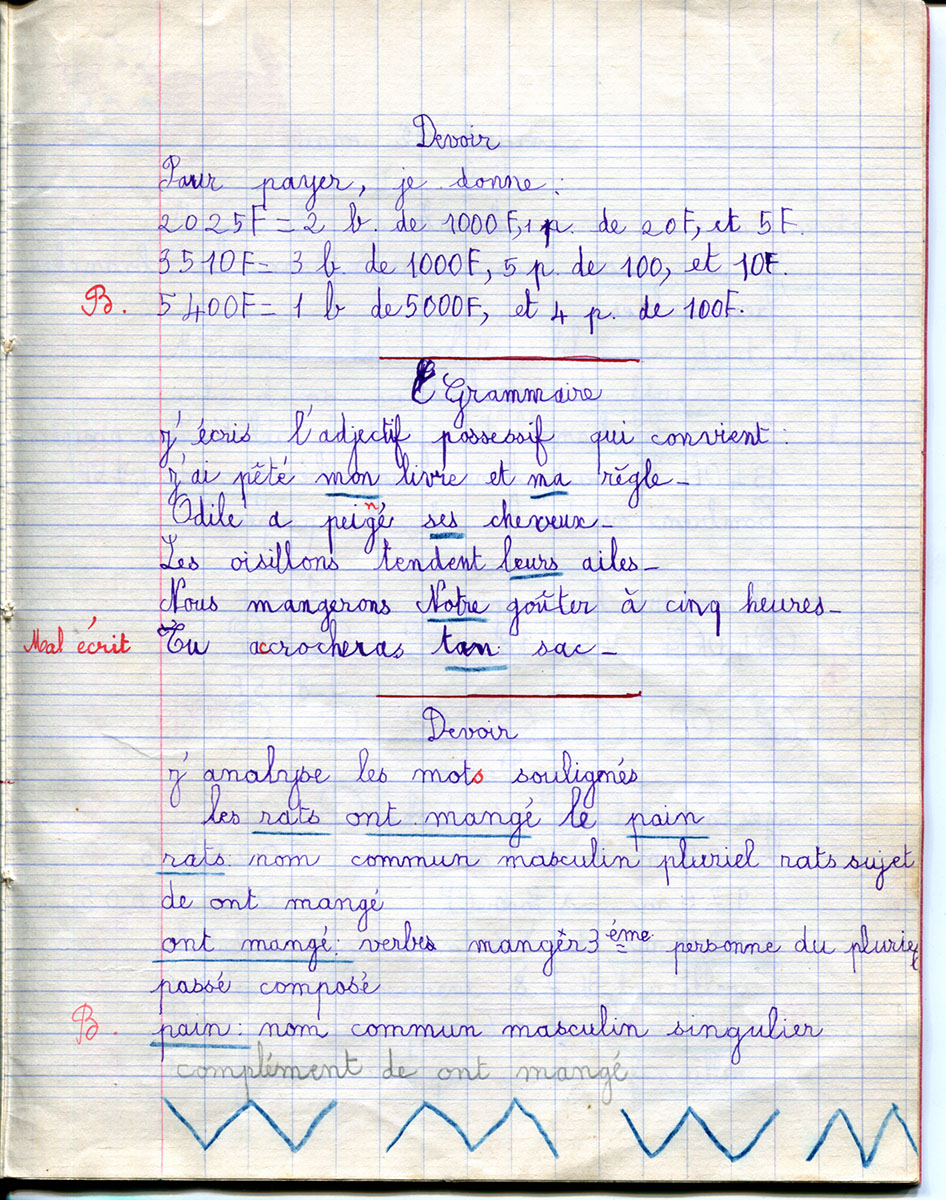 Devoir
Pour payer, je donne :
2025F = 2 b. de 1000F, 1 p. de 20F, et 5F.
3510F = 3 b. de 1000F, 5 p. de 100, et 10F.
B. 5400F = 1 b de 5000F, et 4 p. de 100F.
Grammaire
j'écris l'adjectif possessif qui convient :
j'ai pêté mon livre et ma règle_
Odile a peigné ses cheveux_
Les oisillons tendent leurs ailes_
Nous mangerons Notre goûter à cinq heures_
Mal écrit Tu accrocheras ton sac_
Devoir
j'analyse les mots soulignés
les rats ont mangé le pain
rats : nom commun masculin pluriel rats sujet
de ont mangé
ont mangé : verbes mangêr 3 éme personne du pluriel
passé composé
B. pain : nom commun masculin singulier
complément de ont mangé